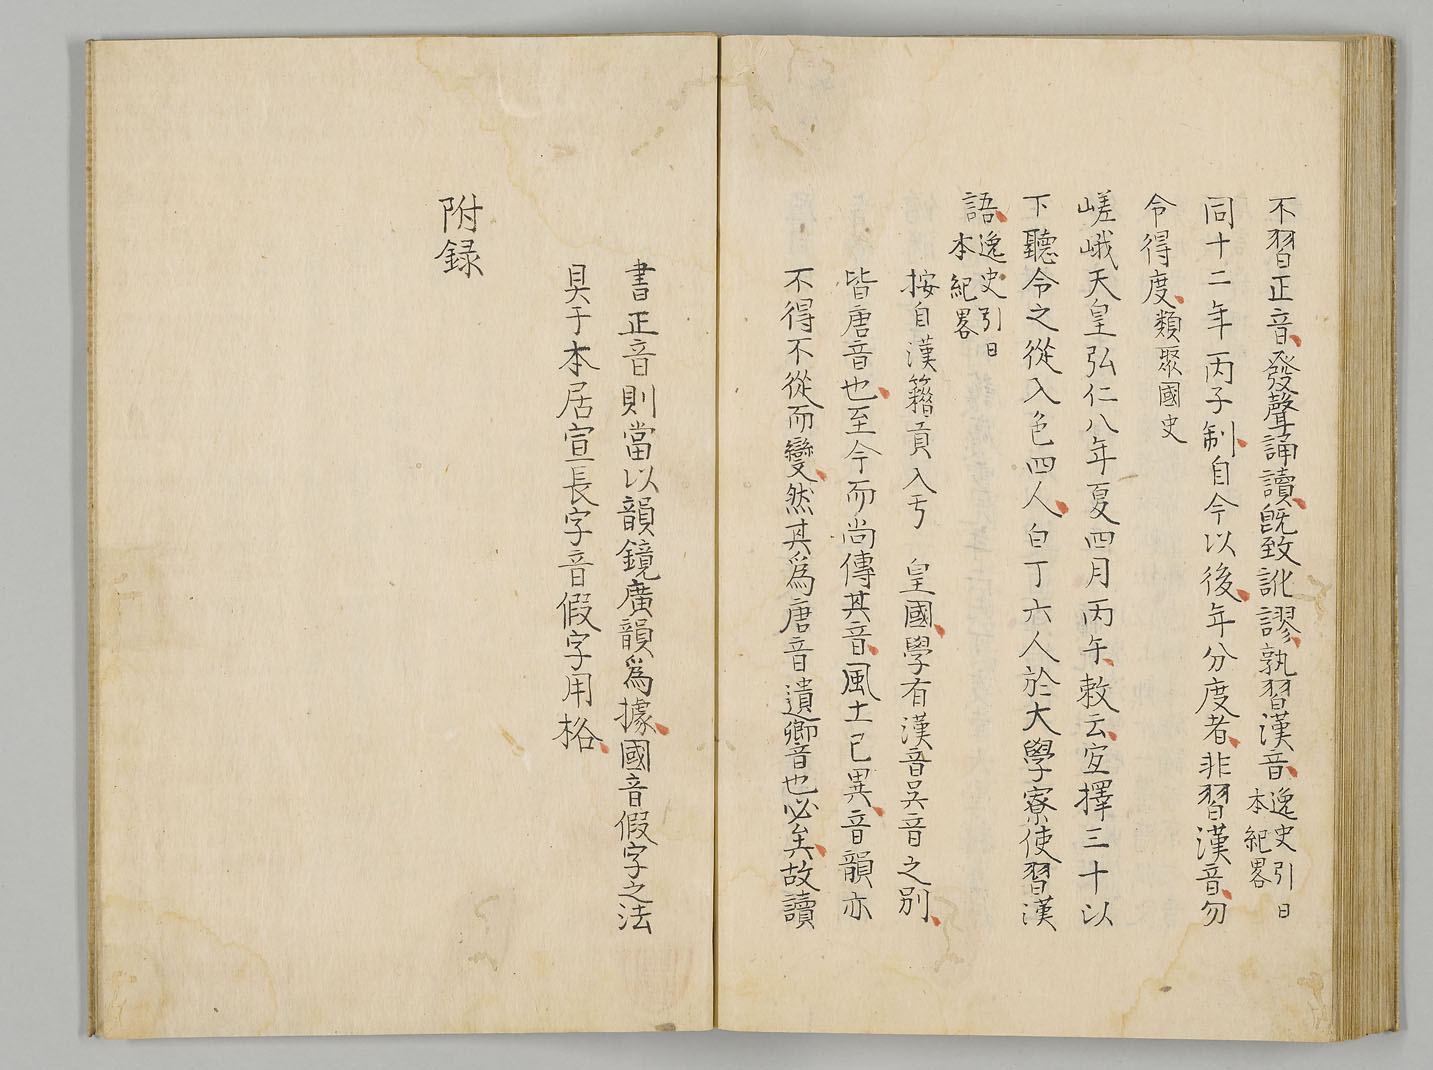 不習正音、發聲誦讀、既致訛謬、孰習漢音、逸史引日
本紀畧
同十二年丙子制、自今以後、年分度者、非習漢音、勿
令得度、類聚國史
嵯峨天皇弘仁八年夏四月丙午、敕云、宜擇三十以
下聽令之從入色四人、白丁六人於大學寮使習漢
語、逸史引日
本紀畧
按自漢籍貢入于 皇國、學有漢音吴音之別、
皆唐音也、至今而尚傳其音、風土已異、音韻亦
不得不從而變、然其爲唐音遺鄉音也必矣、故讀
書正音則當以韻鏡廣韻爲據、國音假字之法
具于本居宣長字音假字用格、
附録